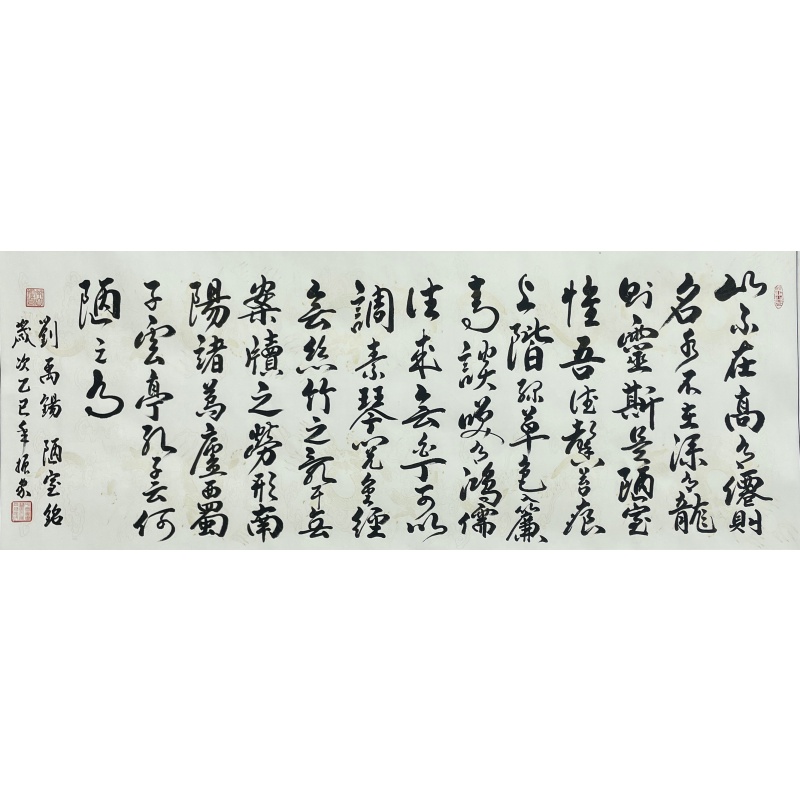 山不在高有僊則
名水不在深有龍
則靈斯是陋室
惟吾德馨苔痕
上階綠草色入簾
青談笑有鴻儒
往來無白丁可以
調素琴閱金經
無絲竹之亂耳無
案牘之勞形南
陽諸葛廬西蜀
子雲亭孔子云何
陋之有
劉禹錫 陋室銘
歲次乙巳年